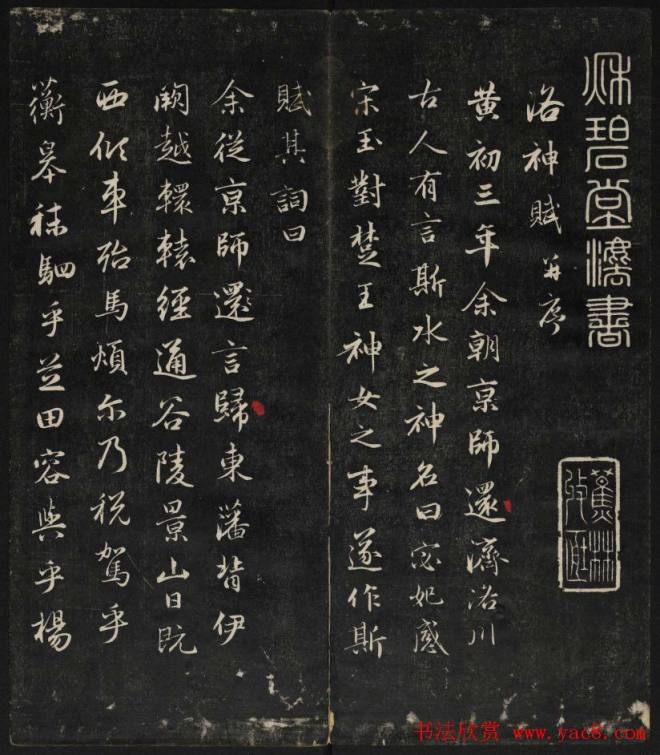 秋碧堂灋書
洛神賦 并序
黃初三年余朝亰師還濟洛川
古人有言斯水之神名曰宓妃感
宋玉對楚王神女之事遂作斯
賦其詞曰
余從亰師還言歸東藩背伊
闕越轘轅經通谷陵景山日既
西傾車殆馬煩尓乃稅駕乎
蘅皋秣駟乎芝田容與乎楊
蕉林
书法欣赏 www.yac8.com